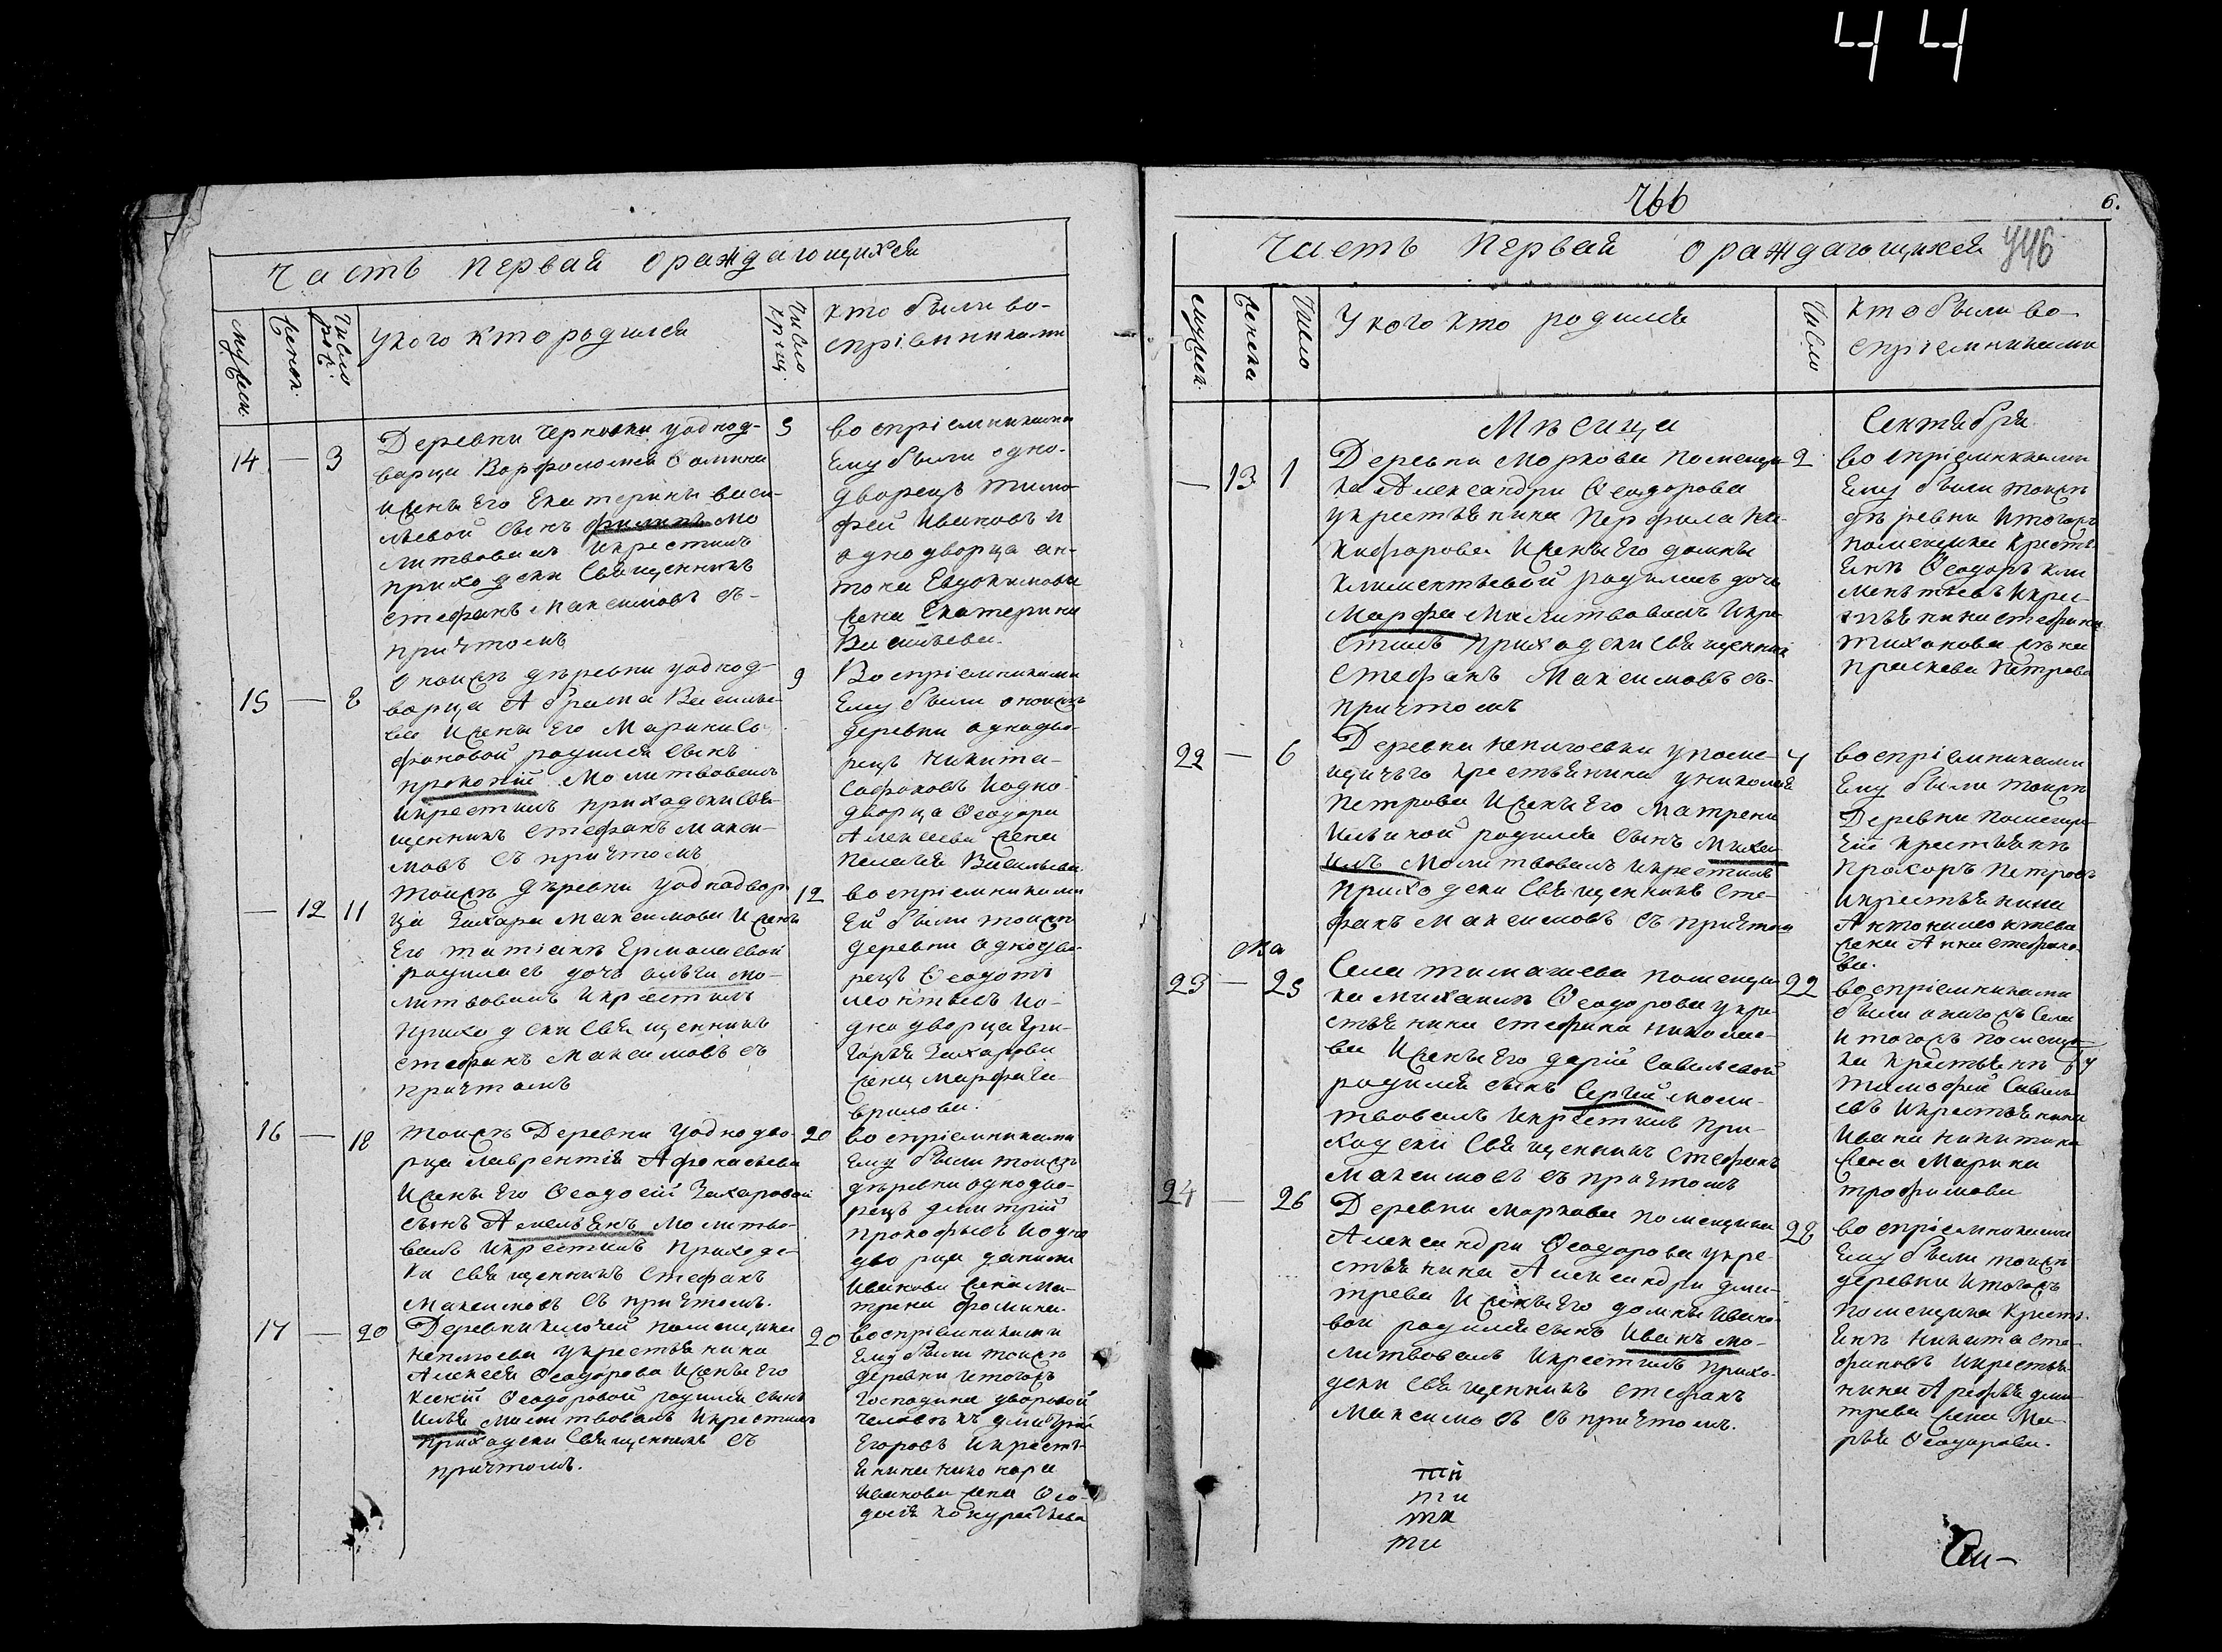 44
Часть первая о раждающихся
Мужеск.
Женск.
Число рож.
У кого кто родился
Число крещ.
кто были во-
спріемниками
14 — 3
Деревни Черновки у однод-
5
ворца Варфоломея Фомина
и жены Его Екатерины Васи-
льевой сынъ Филипъ мо
литвовалъ и крестилъ
приходски священникъ
Стефанъ Максимовъ съ
причтомъ
воспріемниками
Ему были одно-
дворецъ Тимо
фей Ивановъ и
однодворца Ан-
тона Евдокимова
жена Екатерина
Васильева.
15 — 8
Оноижъ деревни у однод-
9
ворца Абрама Василье-
ва и жены Его Марины Со
фоновой родился сынъ
Прокопій молитвовалъ
и крестилъ приходски свя-
щенникъ Стефанъ Макси-
мовъ съ причтомъ
Воспріемниками
Ему были оноижъ
деревни однодво-
рецъ Никита
Сафоновъ и одно
дворца Феодора
Алексеева жена
Пелагея Васильева
— 12 11
Тоижъ деревни у однодвор
12
ца Захара Максимова и жены
Его Татіаны Ермолаевой
родилась дочь
мо-
литвовалъ и крестилъ
приходски священникъ
Стефанъ Максимовъ съ
причтомъ
воспріемниками
Ей были тоижъ
деревни однодво-
рецъ Феодотъ
и о-
днодворца Гри-
горья Захарова
жена Марфа Га-
врилова.
16 — 18
Тоижъ Деревни у однодво-
20
рца Лаврентія Афонасьева
и жены Его Феодосіи Захаровой
сынъ Амельянъ молитво-
валъ и крестилъ приходс-
ки священникъ Стефанъ
Максимовъ съ причтомъ.
воспріемниками
Ему были тоижъ
дѣревни однодво-
рецъ Дмитрій
Прокофьевъ и одно
дворца Данила
Иванова жена Ма-
трена Фомина.
17 — 20
Деревни Ключей помещика
20
Неплюева у крестьянина
Алексея Феодорова и жены Его
Ксеніи Феодоровой родился сынъ
Илья молитвовалъ и крестилъ
приходски священникъ съ
причтомъ.
воспріемниками
Ему были тоижъ
деревни и тогожъ
Господина дворовой
человекъ Дмитрій
Егоровъ и кресть-
янина Никонора
Иванова жена Фео-
досья
766
6.
446
Часть первая о раждающихся
Мужеск.
Женска
Число
У кого кто родился
Число
кто были во-
спріемниками
Мѣсяца
Сентября
— 13 1
Деревни Моркова помещи
2
ка Александра Феодорова
у крестьянина Перфила Ни-
кифорова и жены Его Домны
Климентьевой родилась дочь
Марфа молитвовалъ и кре
стилъ приходски священник
Стефанъ Максимовъ съ
причтомъ
воспріемниками
Ему были тоижъ
дѣревни и тогожъ
помещика кресть
янъ Феодоръ Кли
ментьевъ и крес-
тьянина Стефана
Тиханова жена
Праскева Петрова
22 — 6
Деревни Неплюевки у поме-
7
щичьго крестьянина у Николая
Петрова и жены Его Матрены
Ильиной родился сынъ Миха-
илъ молитвовалъ и крестилъ
приходски священникъ Сте-
фанъ Максимовъ съ причтом
воспріемниками
Ему были тоижъ
Деревни помещи-
чій крестьянъ
Прохоръ Петровъ
и крестьянина
Антона
жена Анна Стефано-
ва.
23 — 25
Села Тимашева помещи
22
ка Михаила Феодорова у кре-
стьянина Стефана Николае-
ва и жены Его Дарии Савельевой
родился сынъ Сергий моли-
твовалъ и крестилъ при-
ходски священникъ Стефанъ
Максимовъ съ причтомъ
воспріемниками
были оногожъ села
и тогожъ помещи
ка крестьянъ
Тимофей Савель
евъ и крестьянина
Ивана Никитина
жена Марина
Трофимова
24 — 26
Деревни Маркова помещика
28
Александра Феодорова у кре-
стьянина Александра Дми-
трева и жены Его Домны Ивано-
вой родился сынъ Иванъ мо-
литвовалъ и крестилъ прихо-
дски священникъ Стефанъ
Максимовъ съ причтомъ.
воспріемниками
Ему были тоижъ
деревни и тогожъ
помещика кресть-
янъ Никита Сте-
фановъ и крестья-
нина Арефья Дми-
трева жена Ма-
рья Феодорова.
ти
ти
ти